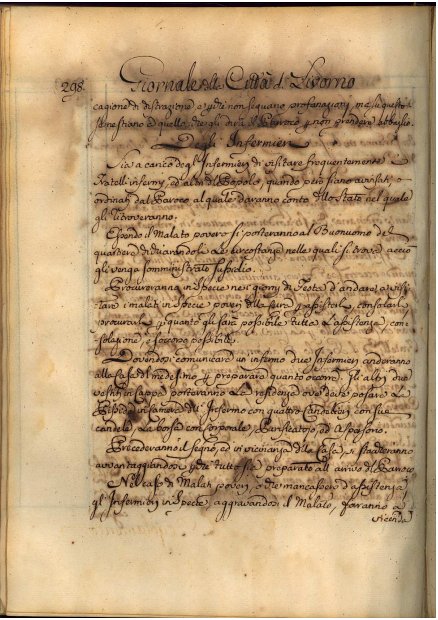 298. Giornale della Città di Livorno
cagione di distrazione e perche non seguano profanazioni, ma di questo
che gli dirà il Parroco per non prendere sbaglio.
Degl' Infermieri
Sia a carico degl' Infermieri di visitare frequentemente i
Fratelli infermi, ed altri di Popolo, quando però siano avvisati, o
ordinati dal Paroco al quale daranno conto dello stato nel quale
gli ritroveranno.
Essendo il Malato povero si porteranno al Buonuomo del
quartiere dicendoli le circostanze nelle quali si trova acciò
gli venga somministrato sussidio.
Procureranno in Specie ne i giorni di Festa d'andare a visi-
tare i malati in Specie poveri della sera, consolarli
procurarli per quanto gli sarà possibile tutta l'assistenza, con-
solazione, e soccorso possibile.
Dovendosi comunicare un infermo due Infermieri anderanno
alla Casa del medesimo per preparare quanto occorra. Gli altri due
vestiti in Cappa porteranno la residenza ove deve posare la
Pisside in Camera dell' Infermo con quattro Candelieri con sue
candele, la borsa con corporale, Purificatojo, ed Aspersorio.
Precederanno il Segno, ed in vicinanza della Casa, si staccheranno
avvantaggiandosi perche tutto sia preparato all' arrivo del Parroco
Nel caso di Malati poveri, o che mancassero d'assistenza,
gl' Infermieri in Specie, aggravandosi il Malato, faranno a
vicenda